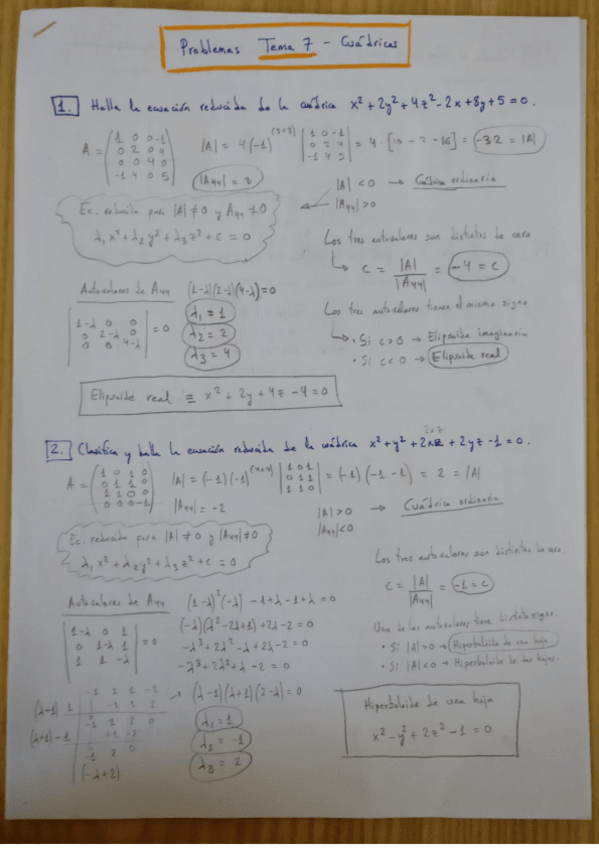 Problemas Tema 7 - Cuádricas
1. Halla la ecuación reducida de la cuádrica x² + 2y² + 4z² - 2x + 8y + 5 = 0.
A = (1 0 0 -1
0 2 0 4
0 0 4 0
-1 4 0 5)
|A| = 4(-1)^(3+3) |1 0 -1
0 2 4
-1 4 5| = 4 · [10 - 2 - 16] = -32 = |A|
|A₄₄| = 8
|A| < 0 → Cuádrica ordinaria
|A₄₄| > 0
Ec. reducida para |A| ≠ 0 y A₄₄ ≠ 0
λ₁x² + λ₂y² + λ₃z² + c = 0
Los tres autovalores son distintos de cero
↳ c = |A| / |A₄₄| = -4 = c
Autovalores de A₄₄ (1-λ)(2-λ)(4-λ) = 0
|1-λ 0 0
0 2-λ 0
0 0 4-λ| = 0
λ₁ = 1
λ₂ = 2
λ₃ = 4
Los tres autovalores tienen el mismo signo
↳ • Si c > 0 → Elipsoide imaginario
• Si c < 0 → Elipsoide real
Elipsoide real ≡ x² + 2y + 4z - 4 = 0
2. Clasifica y halla la ecuación reducida de la cuádrica x² + y² + 2xz + 2yz - 1 = 0.
2xz
A = (1 0 1 0
0 1 1 0
1 1 0 0
0 0 0 -1)
|A| = (-1)(-1)^(4+4) |1 0 1
0 1 1
1 1 0| = (-1)(-1-1) = 2 = |A|
|A₄₄| = -2
|A| > 0 → Cuádrica ordinaria
|A₄₄| < 0
Ec. reducida para |A| ≠ 0 y |A₄₄| ≠ 0
λ₁x² + λ₂y² + λ₃z² + c = 0
Los tres autovalores son distintos de cero.
c = |A| / |A₄₄| = -1 = c
Autovalores de A₄₄ (1-λ)²(-λ) - 1 + λ - 1 + λ = 0
|1-λ 0 1
0 1-λ 1
1 1 -λ| = 0
(-λ)(λ² - 2λ + 1) + 2λ - 2 = 0
-λ³ + 2λ² - λ + 2λ - 2 = 0
-λ³ + 2λ² + λ - 2 = 0
Uno de los autovalores tiene distinto signo.
• Si |A| > 0 → Hiperboloide de una hoja
• Si |A| < 0 → Hiperboloide de dos hojas.
-1 2 1 -2
(λ-1) 1
(λ+1) -1
(-λ+2)
→ (λ-1)(λ+1)(2-λ) = 0
λ₁ = 1
λ₂ = -1
λ₃ = 2
Hiperboloide de una hoja
x² - y² + 2z² - 1 = 0